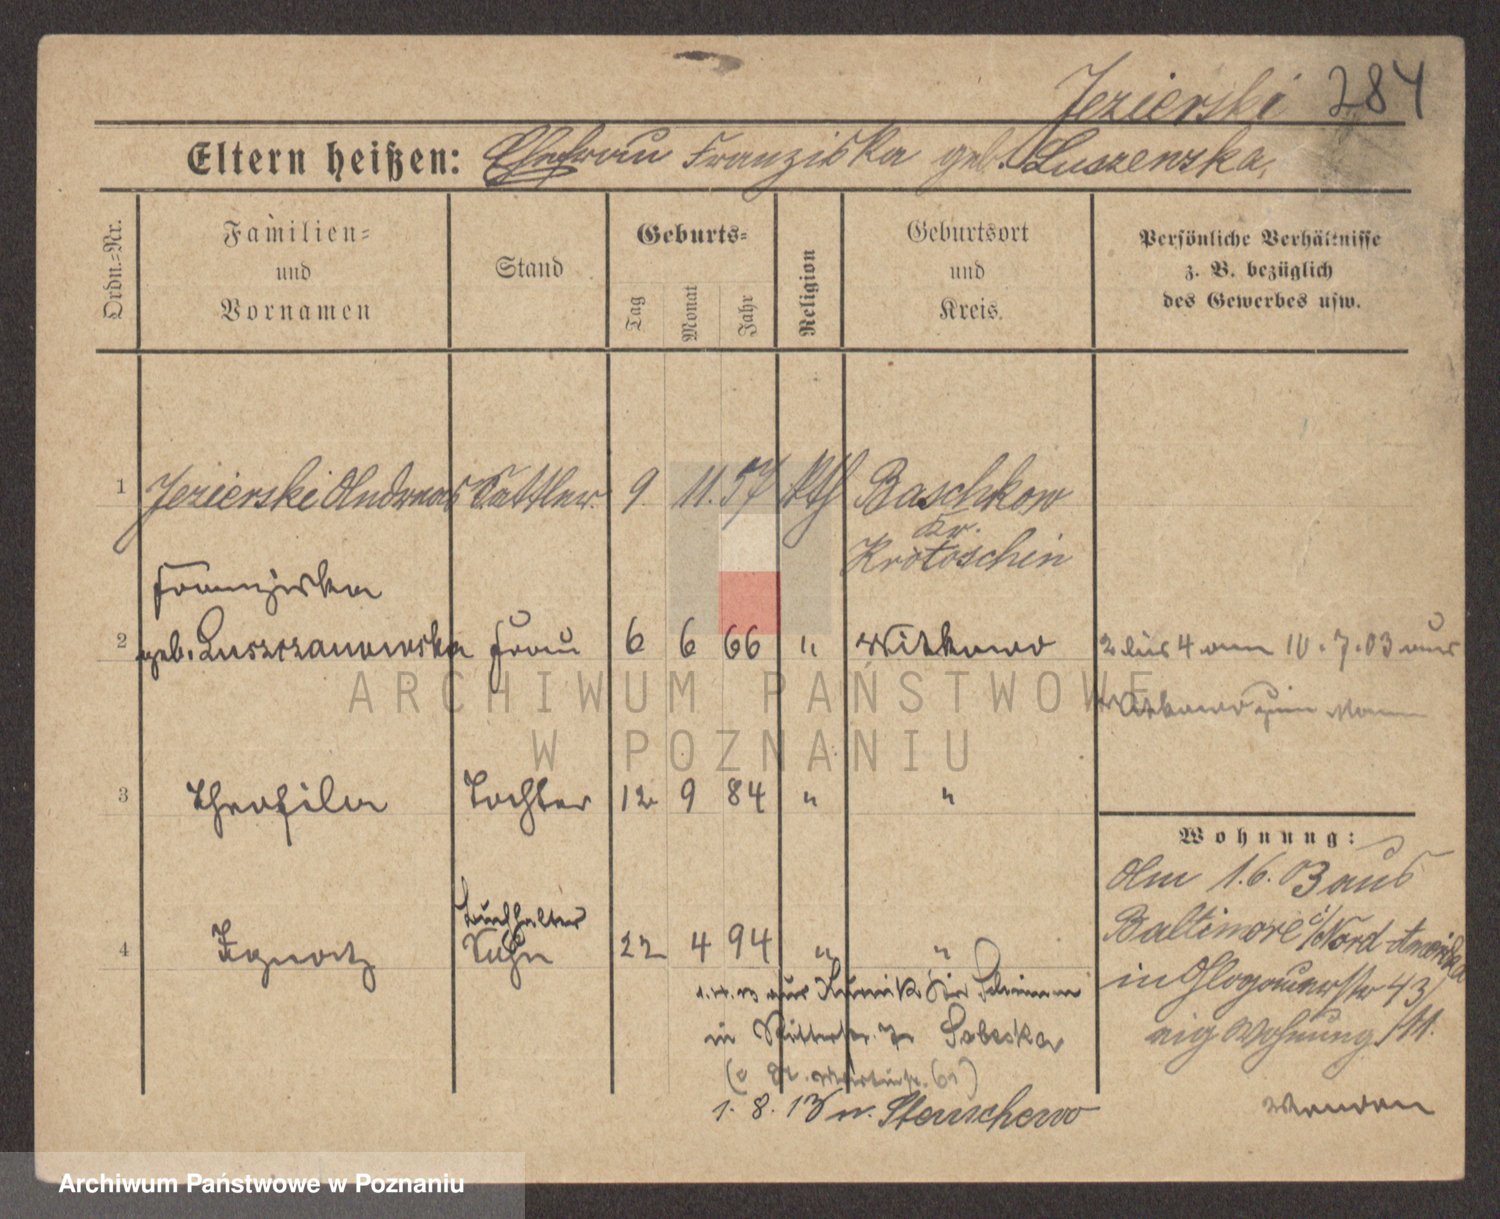 Jezierski 284
Eltern heißen: Ehefrau Franziska geb. Luszenzka,
Ordn.-Nr.
Familien-
und
Vornamen
Stand
Geburts-
Tag
Monat
Jahr
Religion
Geburtsort
und
Kreis.
Persönliche Verhältnisse
z. B. bezüglich
des Gewerbes usw.
1 Jezierski Andreas Sattler 9 11. 57 kth Baschkow
Kr.
Krotoschin
Franziska
2 geb. Luszczanowska Frau 6 6 66 " Witkowo 2 bis 4 am 10.7.03 aus
Witkowo zum Mann
3 Theofila Tochter 12 9 84 " "
Wohnung:
Am 1.6.03 aus
Baltimore i/Nord-Amerika
in Glogauerstr 43/
eig Wohnung /11.
Wenden
Buchhalter
4 Ignatz Sohn 22 4 94 " "
aus
in Ritterstr. Sobeska
(
1. 8. 13 n. Stenschewo
ARCHIWUM PAŃSTWOWE
W POZNANIU
Archiwum Państwowe w Poznaniu